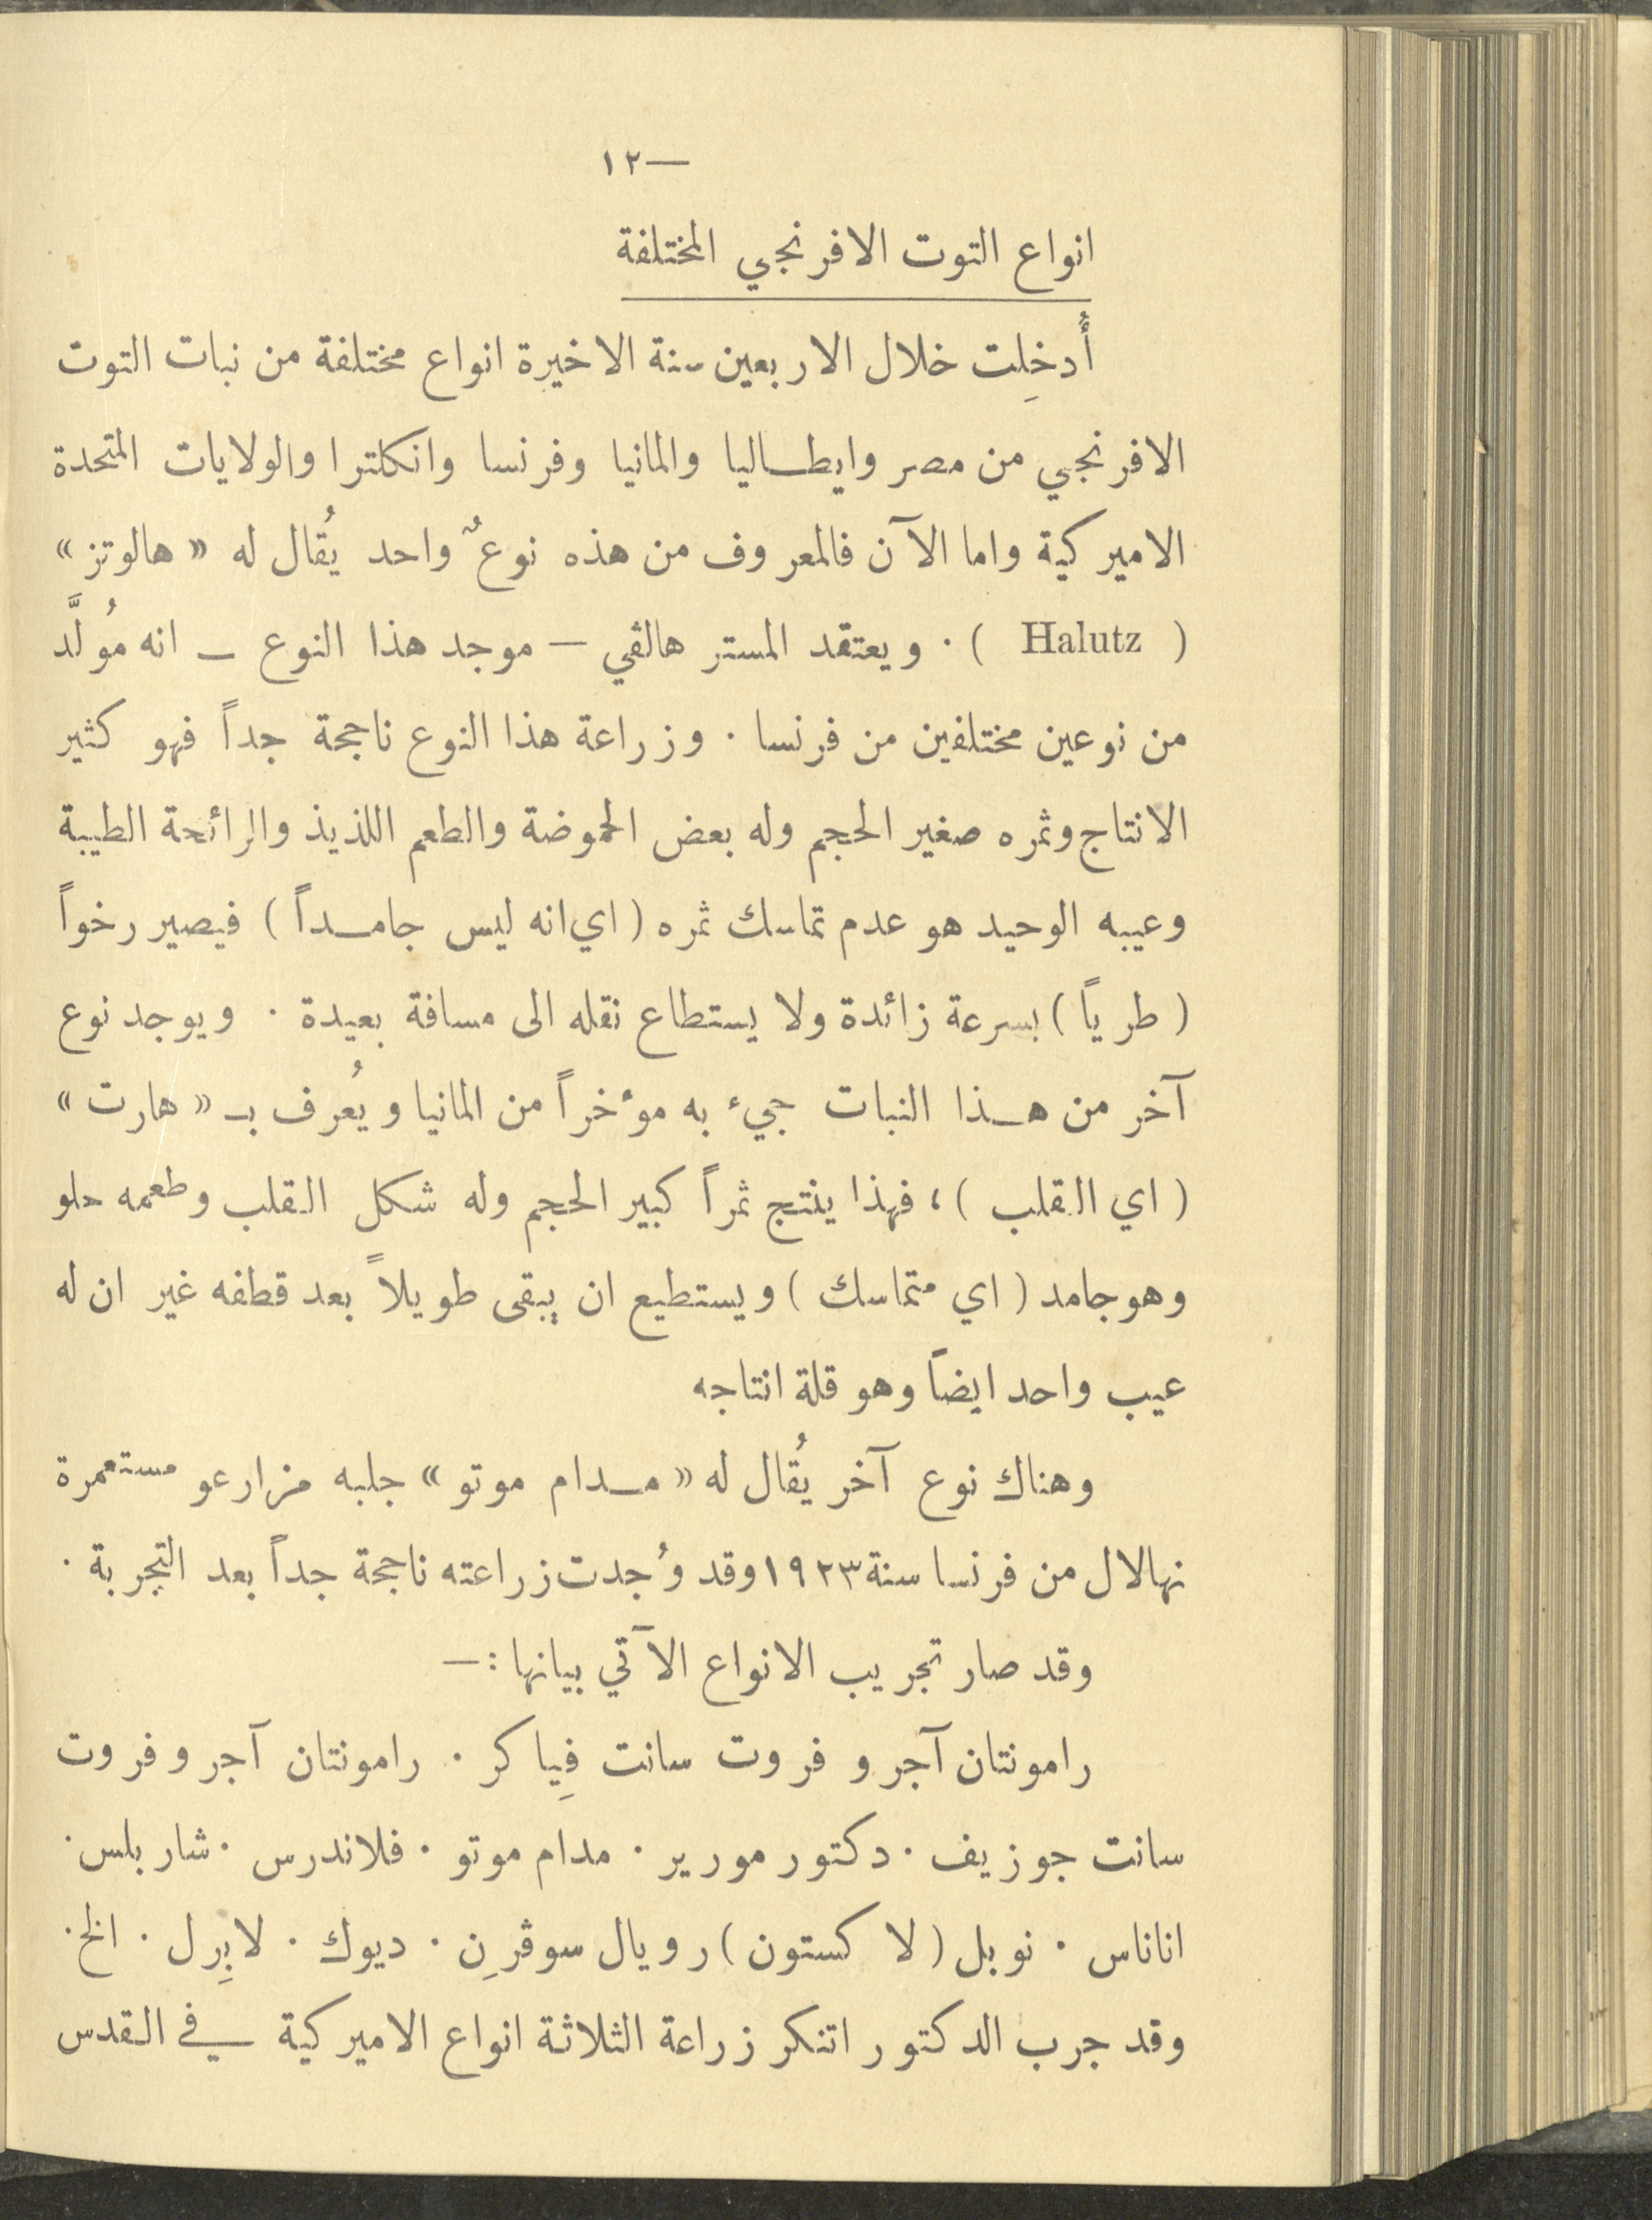 —١٢
انواع التوت الافرنجي المختلفة
أُدخِلت خلال الاربعين سنة الاخيرة انواع مختلفة من نبات التوت
الافرنجي من مصر وايطـاليا والمانيا وفرنسا وانكلترا والولايات المتحدة
الاميركية واما الآن فالمعروف من هذه نوعٌ واحد يُقال له « هالوتز »
( Halutz ) . ويعتقد المستر هالڤي — موجد هذا النوع — انه مُولَّد
من نوعين مختلفين من فرنسا . وزراعة هذا النوع ناجحة جداً فهو كثير
الانتاج وثمره صغير الحجم وله بعض الحموضة والطعم اللذيذ والرائحة الطيبة
وعيبه الوحيد هو عدم تماسك ثمره ( اي انه ليس جامـداً ) فيصير رخواً
( طرياً ) بسرعة زائدة ولا يستطاع نقله الى مسافة بعيدة . ويوجد نوع
آخر من هـذا النبات جيء به مؤخراً من المانيا ويُعرف بـ « هارت »
( اي القلب ) ، فهذا ينتج ثمراً كبير الحجم وله شكل القلب وطعمه حلو
وهو جامد ( اي متماسك ) ويستطيع ان يبقى طويلاً بعد قطفه غير ان له
عيب واحد ايضاً وهو قلة انتاجه
وهناك نوع آخر يُقال له « مـدام موتو » جلبه مزارعو مستعمرة
نهالال من فرنسا سنة ١٩٢٣ وقد وُجدت زراعته ناجحة جداً بعد التجربة .
وقد صار تجريب الانواع الآتي بيانها : —
رامونتان آجر و فروت سانت فِياكر . رامونتان آجر و فروت
سانت جوزيف . دكتور مورير . مدام موتو . فلاندرس . شاربلس .
اناناس . نوبل ( لا كستون ) رويال سوڤرِن . ديوك . لابِرل . الخ .
وقد جرب الدكتور اتنكر زراعة الثلاثة انواع الاميركية في القدس